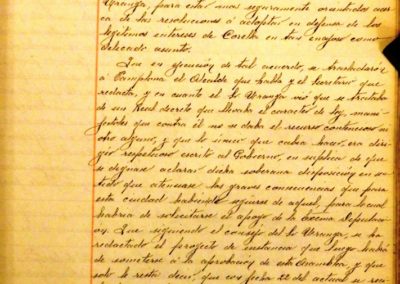 Uranga, para estar mas seguramente orientados acer-
ca de las resoluciones á adoptar en defensa de los
legítimos intereses de Corella en tan enojoso como
delicado asunto.
Que en ejecución de tal acuerdo, se trasladaron
á Pamplona el Alcalde que habla y el Secretario que
redacta, y en cuanto el Sr. Uranga vió que se trataba
de un Real decreto que llevaba el carácter de ley, mani-
festóles que contra él no se daba el recurso contencioso ni
otro alguno, y que lo único que cabía hacer, era diri-
gir respetuoso escrito al Gobierno, en súplica de que
se dignase aclarar dicha soberana disposición en sen-
tido que atenuase las graves consecuencias que para
esta ciudad habían de seguirse de aquel, para lo cual
habría de solicitarse el apoyo de la Excma Diputaci-
ón. Que siguiendo el consejo del Sr. Uranga, se ha
redactado el proyecto de instancia que luego habrá
de someterse á la aprobación de esta Asamblea, y que
solo le resta decir, que con fecha 22 del actual se